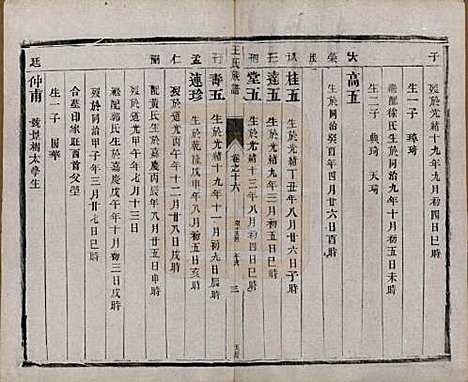 子
歿於光緒十九年九月初四日巳時
生一子 璋琦
鄧徐氏生於同治九年十月初五日未時
生二子 典琦 天琦
大 高五
生於同治癸酉年四月廿六日酉時
桂五
生於光緒丁丑年八月廿六日子時
達五
生於光緒九年三月初五日巳時
堂五
生於光緒十三年八月初四日巳時
王氏族譜
卷之十六
三
壽五
生於光緒十九年十一月初九日辰時
孟 連珍
生於乾隆戊申年八月初五日亥時
仁
歿於道光丙午年十二月廿八日時
配黃氏生於嘉慶丙辰年八月廿五日申時
歿於道光
配郭氏生於嘉慶戊午年十月初三日戌時
歿於同治甲子年三月廿七日巳時
合墓印家
生一子 國華
廷 仲南
號景湘太學生